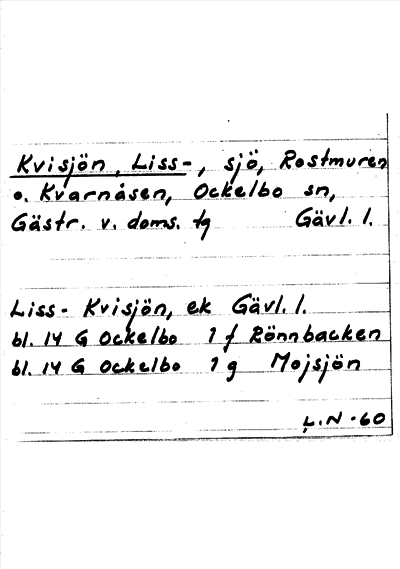 Kvisjön, Liss-, sjö, Rostmuren
o. Kvarnåsen, Ockelbo sn,
Gästr. v. doms. tg Gävl. l.
Liss- Kvisjön, ek Gävl. l.
bl. 14 G Ockelbo 1 f Rönnbacken
bl. 14 G Ockelbo 1 g Mojsjön
L.N -60